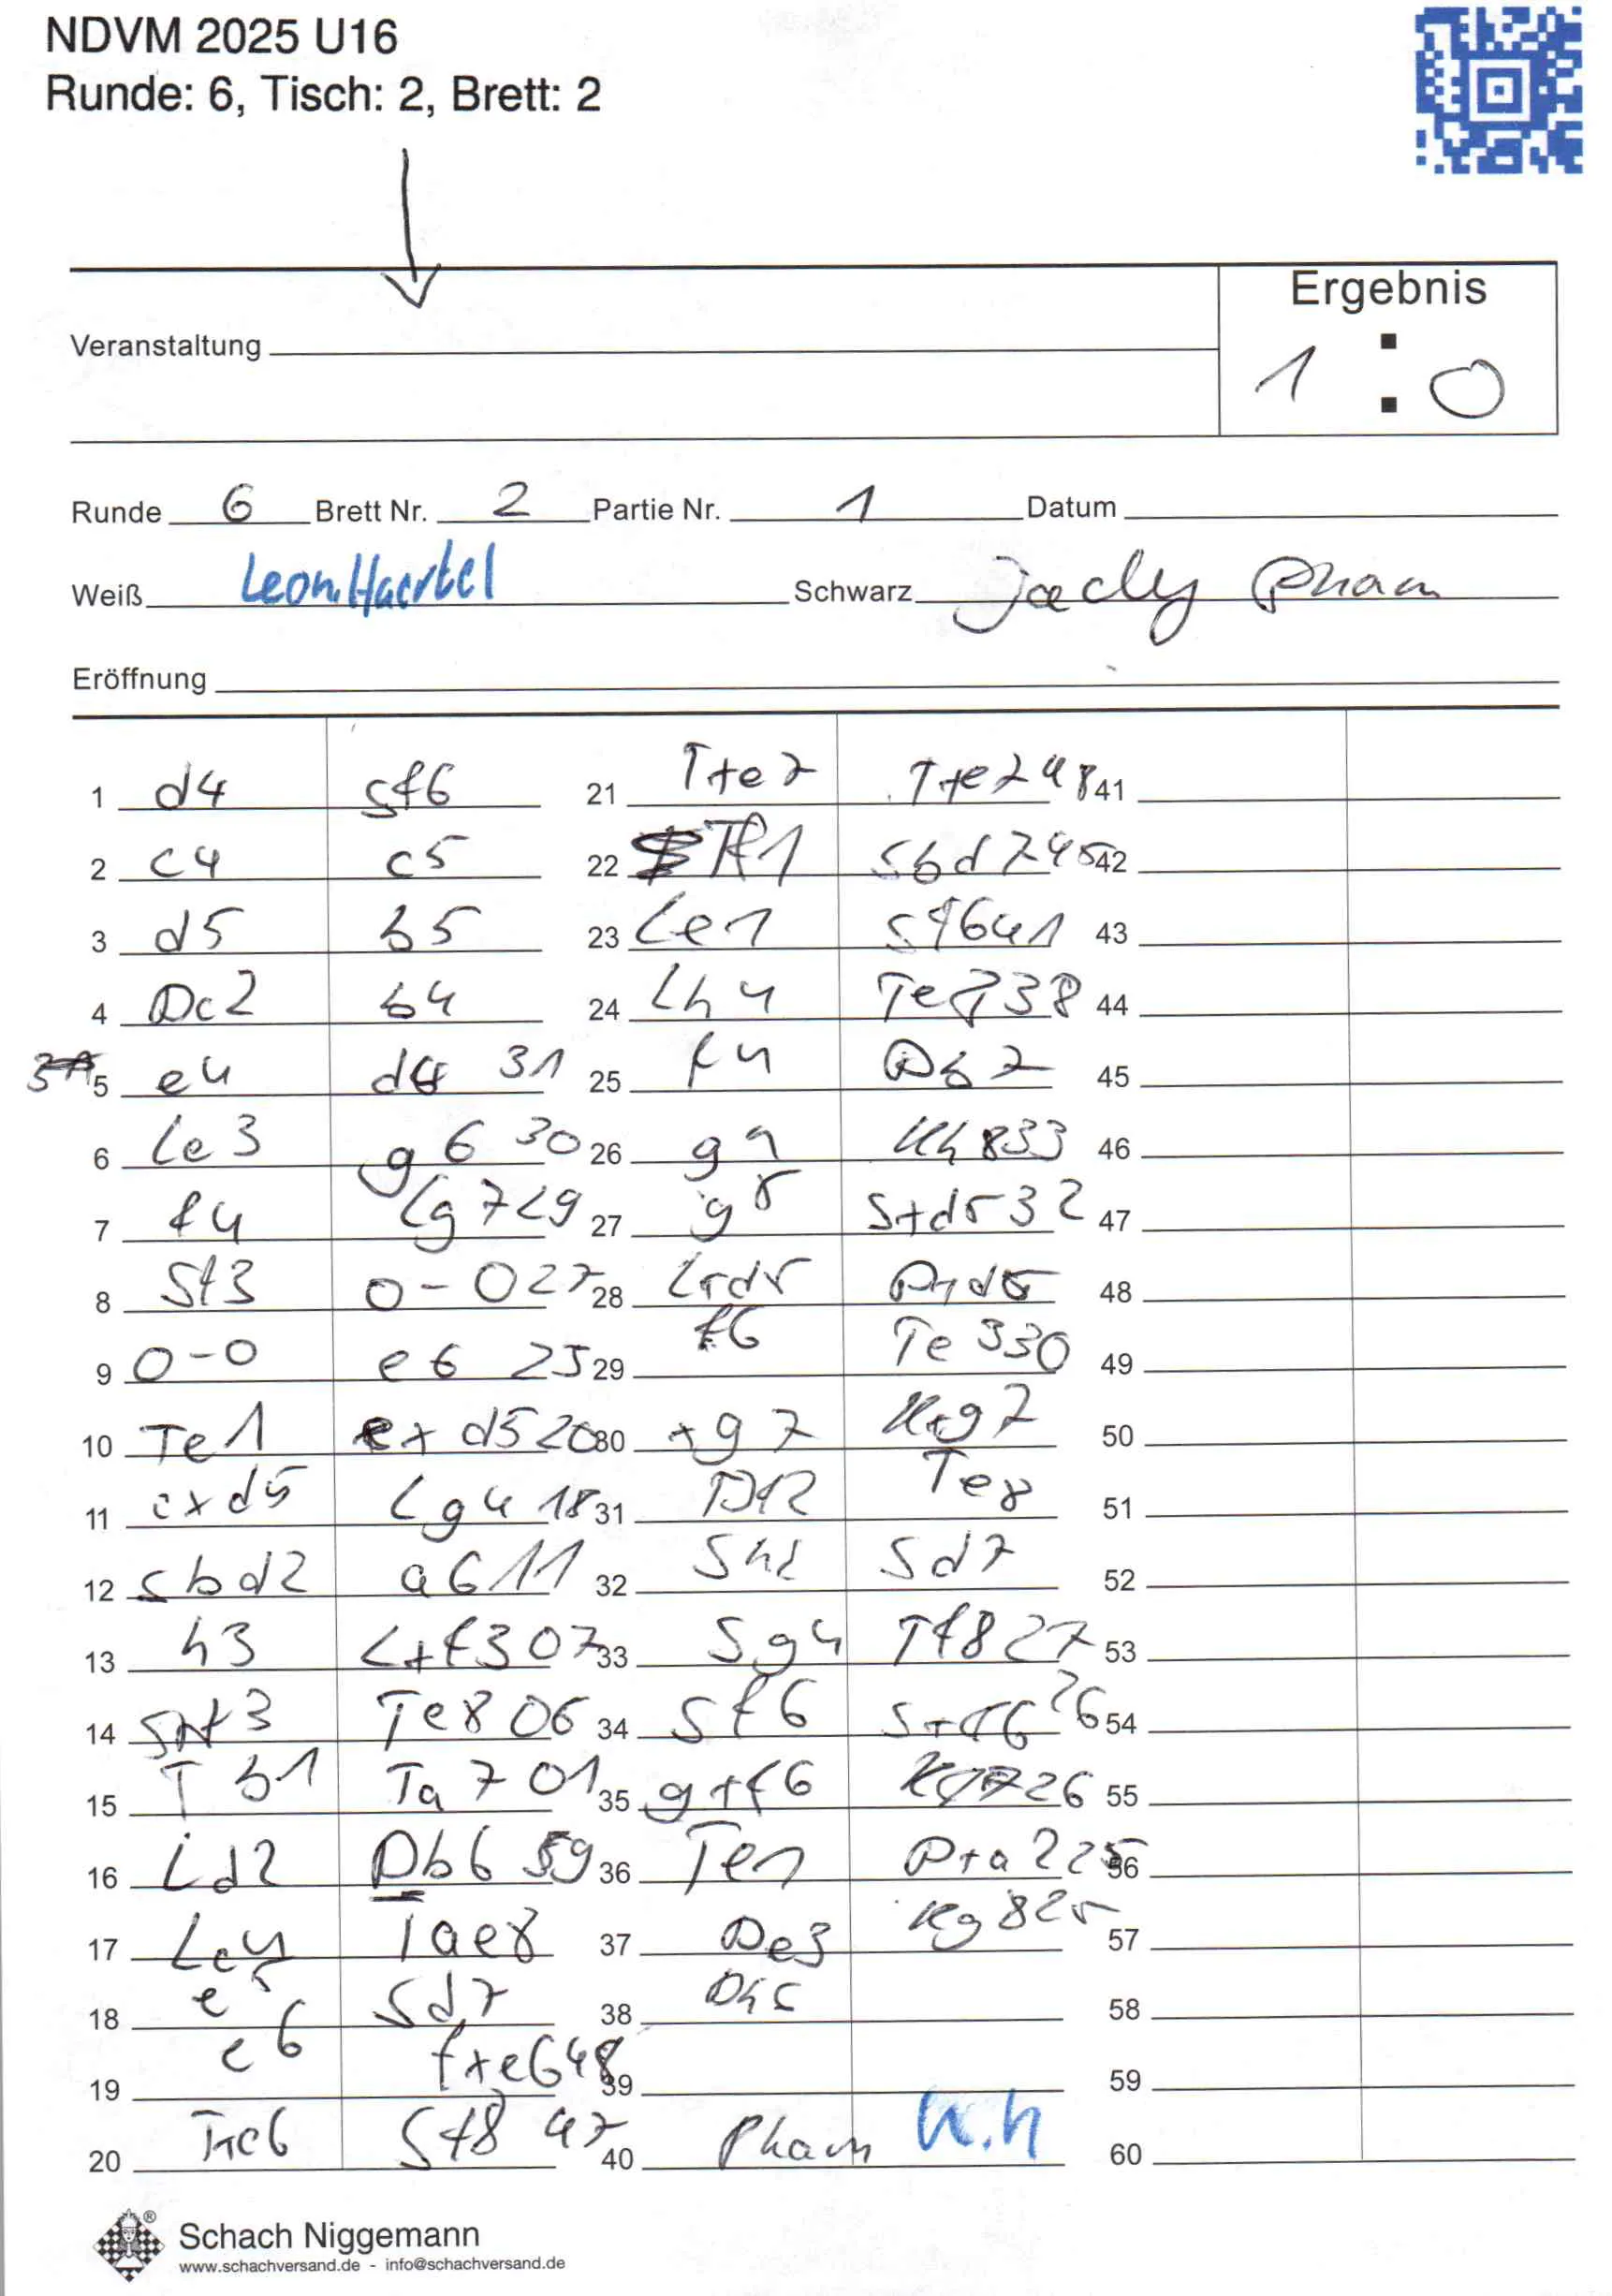 NDVM 2025 U16
Runde: 6, Tisch: 2, Brett: 2
Ergebnis
Veranstaltung
1 : 0
Runde 6 Brett Nr. 2 Partie Nr. 1 Datum
Weiß Leon Haertel Schwarz Jacly Pham
Eröffnung
1 d4 Sf6
2 c4 c5
3 d5 b5
4 Dc2 b4
5 e4 d6 31
6 Le3 g6 30
7 f4 Lg7 29
8 Sf3 0-0 27
9 0-0 e6 25
10 Te1 exd5 20
11 cxd5 Lg4 18
12 Sbd2 a6 11
13 h3 Lxf3 07
14 Sxf3 Te8 06
15 Tb1 Ta7 01
16 Ld2 Db6 59
17 Lc4 Tae8
18 e5 Sd7
19 e6 fxe6 48
20 Txe6 Sf8 47
21 Txe7 Txe7 48
22 Tf1 Sbd7 45
23 Le1 Sf6 41
24 Lh4 Te7 38
25 f4 Db7
26 g4 Kh8 33
27 g5 Sxd5 32
28 Lxd5 Dxd5
29 f6 Te3 30
30 xg7 Kxg7
31 Df2 Te8
32 Sh2 Sd7
33 Sg4 Tf8 27
34 Sf6 Sxf6 26
35 gxf6 26
36 Te1 Dxa2 25
37 De3 Kg8 25
38 Dh6
39
40 Pham
41
42
43
44
45
46
47
48
49
50
51
52
53
54
55
56
57
58
59
60
Schach Niggemann
www.schachversand.de - info@schachversand.de